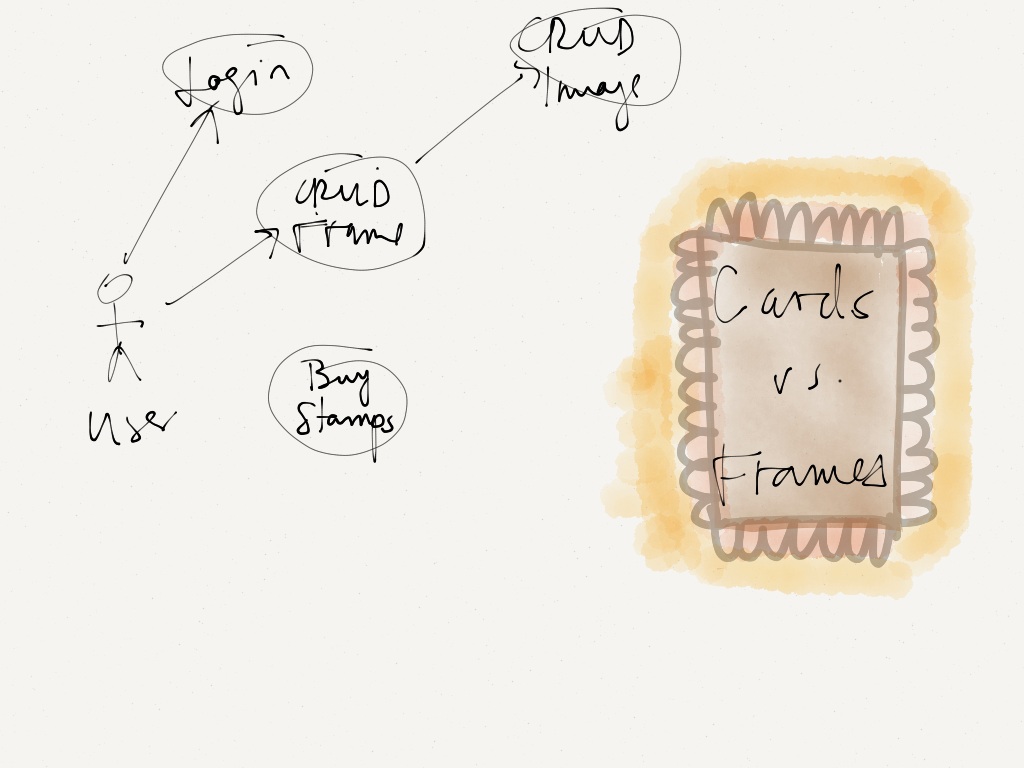 Login
CRUD
Image
CRUD
Frame
User
Buy
Stamps
Cards
vs.
Frames